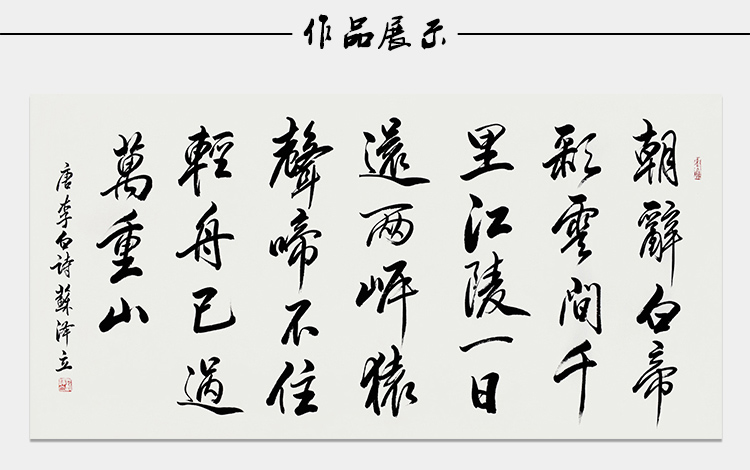 作品展示
朝辭白帝
彩雲間千
里江陵一日
還兩岸猿
聲啼不住
輕舟已過
萬重山
唐李白诗蘇泽立